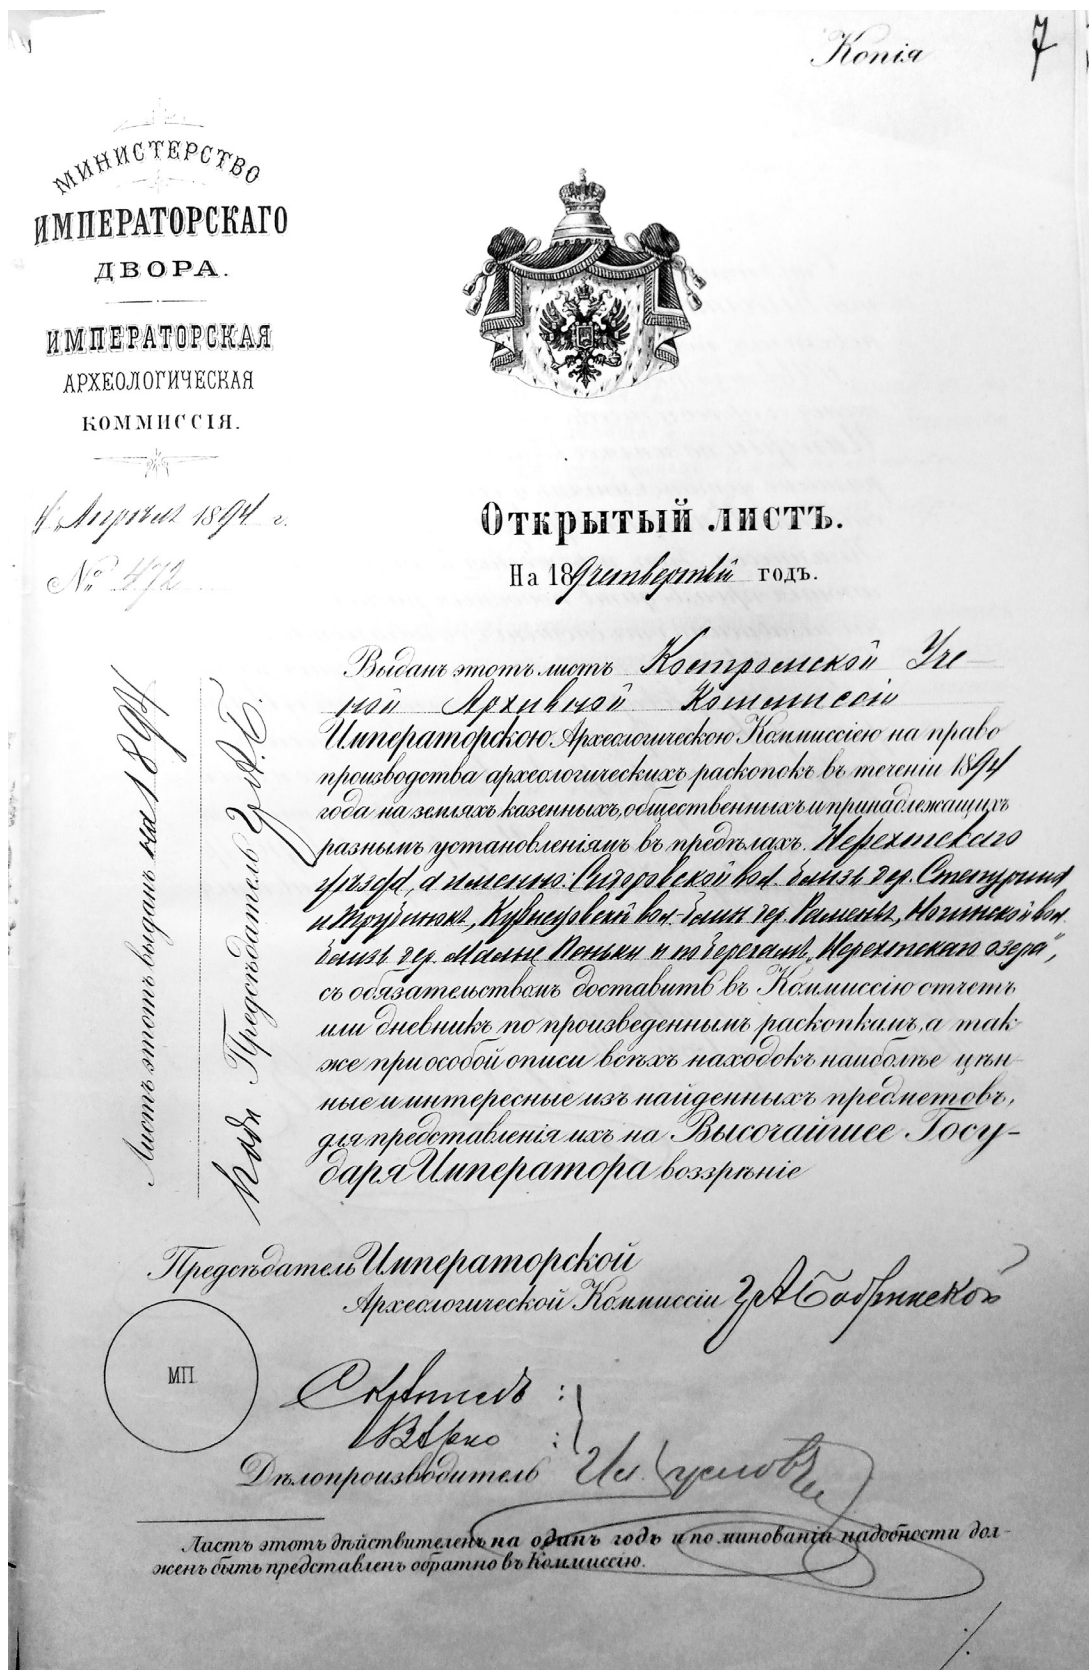 Копія
7
МИНИСТЕРСТВО
ИМПЕРАТОРСКАГО
ДВОРА.
ИМПЕРАТОРСКАЯ
АРХЕОЛОГИЧЕСКАЯ
КОММИССІЯ.
Апрѣля 1894 г.
№ 472
Открытый листъ.
На 189четвертый годъ.
Выданъ этотъ листъ Костромской Уче-
ной Архивной Коммиссіи
Императорскою Археологическою Коммиссіею на право
производства археологическихъ раскопокъ въ теченіи 1894
года на земляхъ казенныхъ, общественныхъ и принадлежащихъ
разнымъ установленіямъ въ предѣлахъ Нерехтскаго
уѣзда, а именно: Сидоровской вол. близь дер. Степурина
и близь дер. Раменье, вол.
близь дер. Малые Пеньки и по берегамъ „Нерехтскаго озера",
съ обязательствомъ доставить въ Коммиссію отчетъ
или дневникъ по произведеннымъ раскопкамъ, а так
же при особой описи всѣхъ находокъ наиболѣе цѣн-
ные и интересные изъ найденныхъ предметовъ,
для представленія ихъ на Высочайшее Госу-
даря Императора воззрѣніе
Листъ этотъ выданъ на 1894
годъ Предсѣдатель Гр. А. Б.
Предсѣдатель Императорской
Археологической Коммиссіи Гр А Бобринской
МП.
Скрѣпилъ :
Вѣрно :
Дѣлопроизводитель
Листъ этотъ дѣйствителенъ на одинъ годъ и по минованіи надобности дол-
женъ быть представленъ обратно въ Коммиссію.